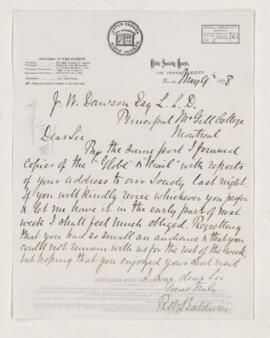 OFFICERS OF THE SOCIETY.
Bible Society House,
102 YONGE STREET,
Toronto, May 9th 1878
J. W. Dawson Esq L. L. D.
Principal McGill College
Montreal
Dear Sir
Per the same post I forward
copies of the "Globe" & Mail" with reports
of your address to our Society last night.
If you will kindly revise whichever you prefer
& let me have it in the early part of next
week I shall feel much obliged. Regretting
that you had so small an audience & that you
could not remain with us for the rest of the week
but hoping that you enjoyed your visit
I am, dear Sir
Yours truly
Baldwin